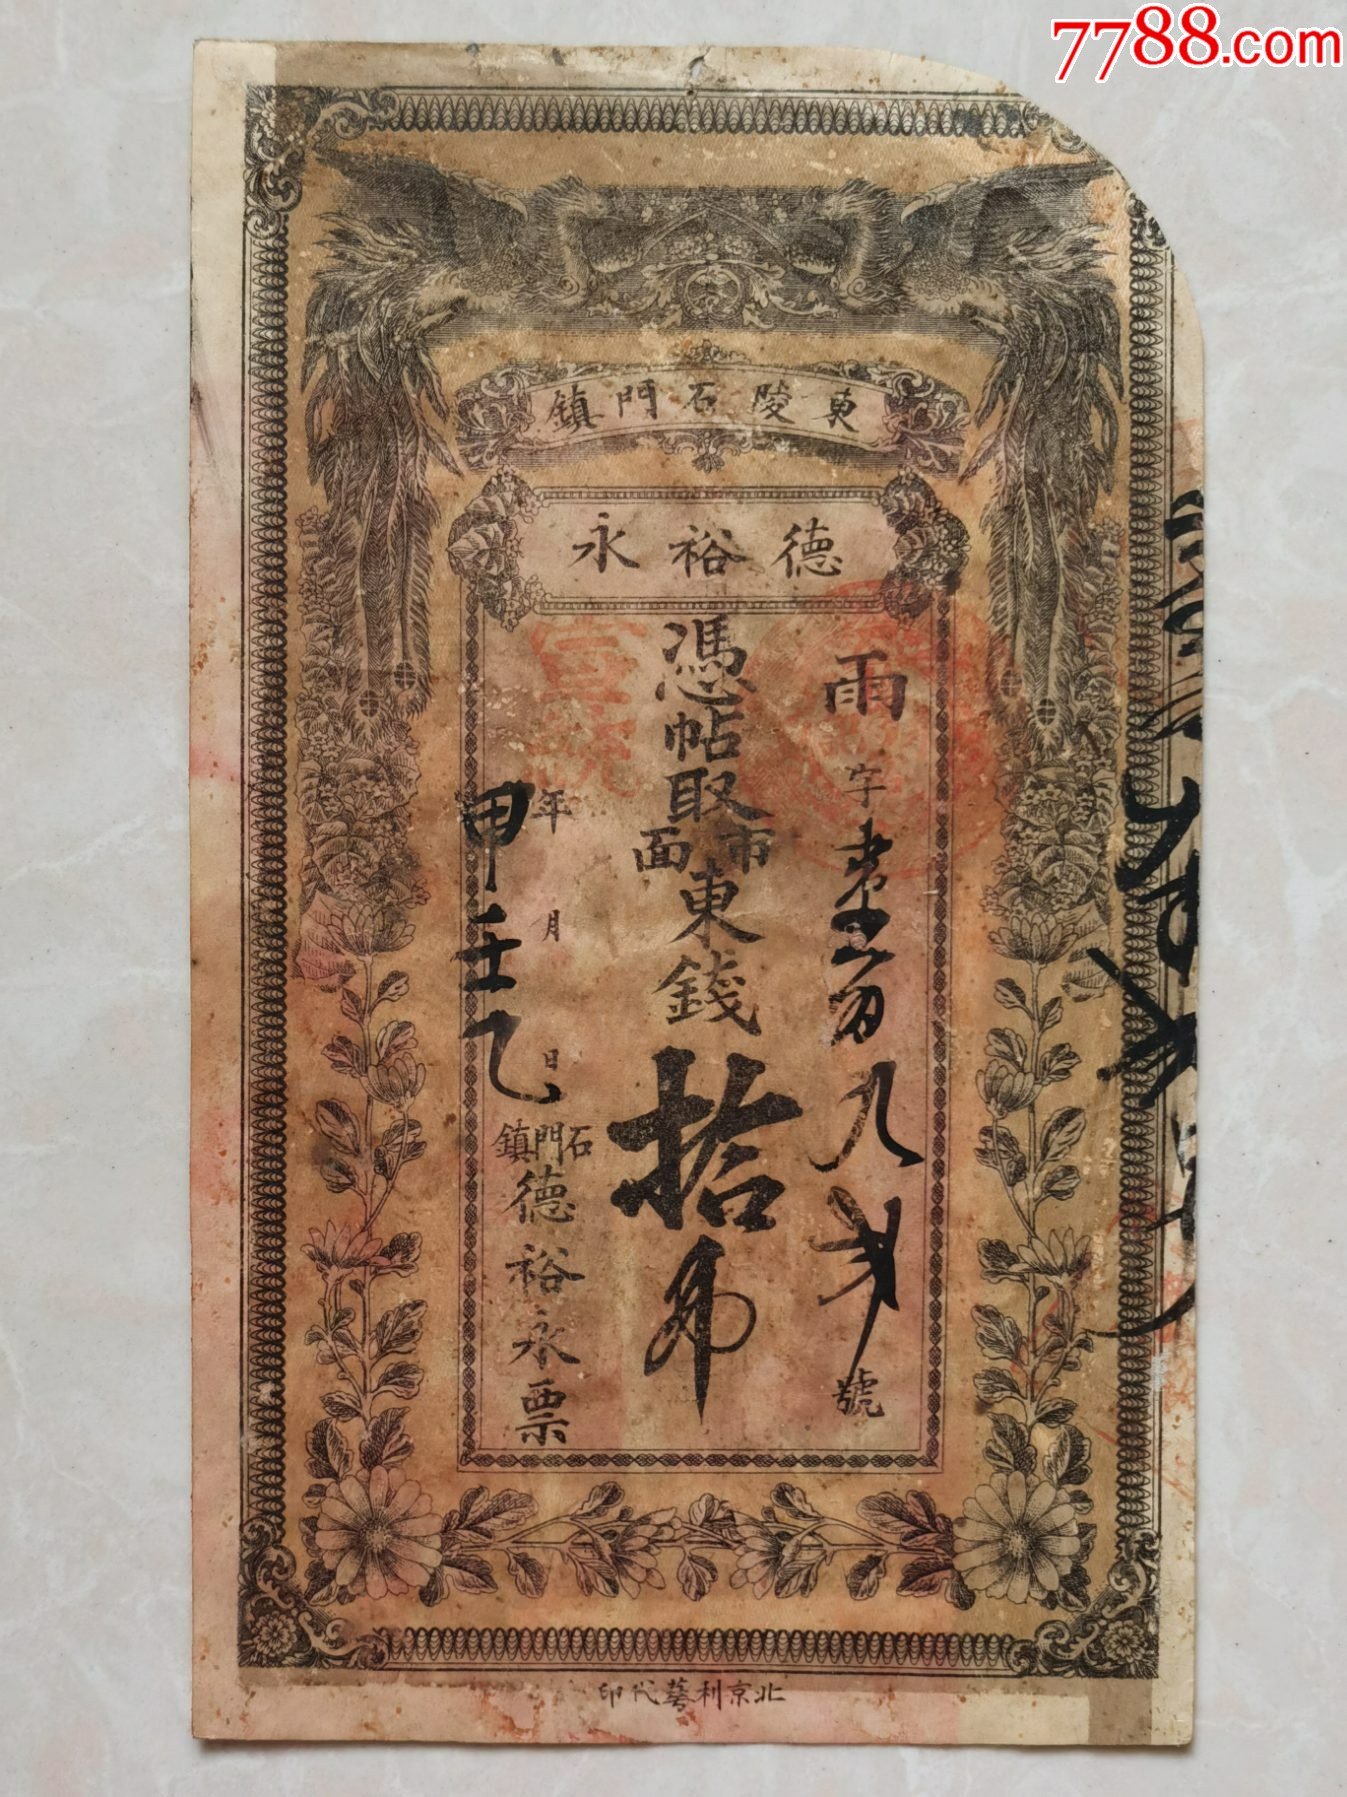 7788.com
東陵石門鎮
德裕永
雨字壹萬九貳號
憑帖取市面東錢拾吊
年月日
甲壬乙
石門鎮德裕永票
宣統
北京利華代印